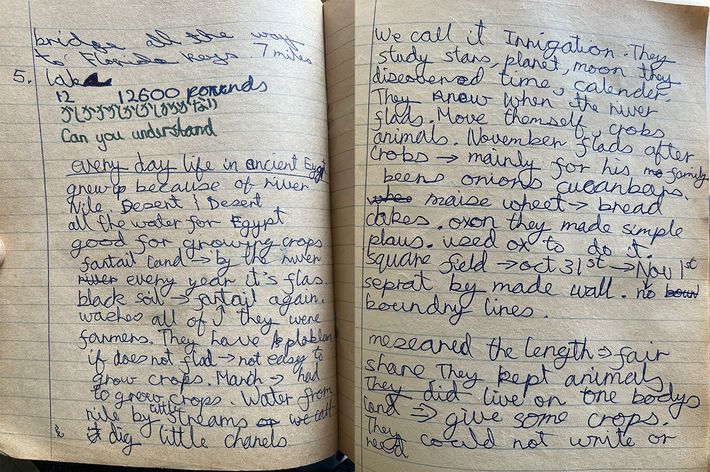 bridge all the way
to Florida keys 7 miles
5. lake
12 12600 pounds
Can you understand
every day life in ancient Egypt
grew up because of river
Nile. Desert | Desert
all the water for Egypt
good for growing crops
fartail land → by the river
river every year it's flas.
black soil → fartail again.
waches all of ↑ they were
farmers. They have problem
if does not flad → not easy to
grow crops. March → had
to grow crops. Water from
nile by little streams or we call
it dig little chanels
We call it Irrigation. They
study stars, planet, moon they
discovered time, calender.
They know when the river
flads. Move themself, crobs
animals. November flads after
crobs → mainly for his family
beens onions cucanbars.
maise wheet → bread
cakes. oxon they made simple
plaus. used ox to do it.
square field → oct 31st → Nov 1st
seprat by made wall. no boun
boundry lines.
meseared the length → fair
share They kept animals
They did live on one bodys
land → give some crops.
They could not write or
read